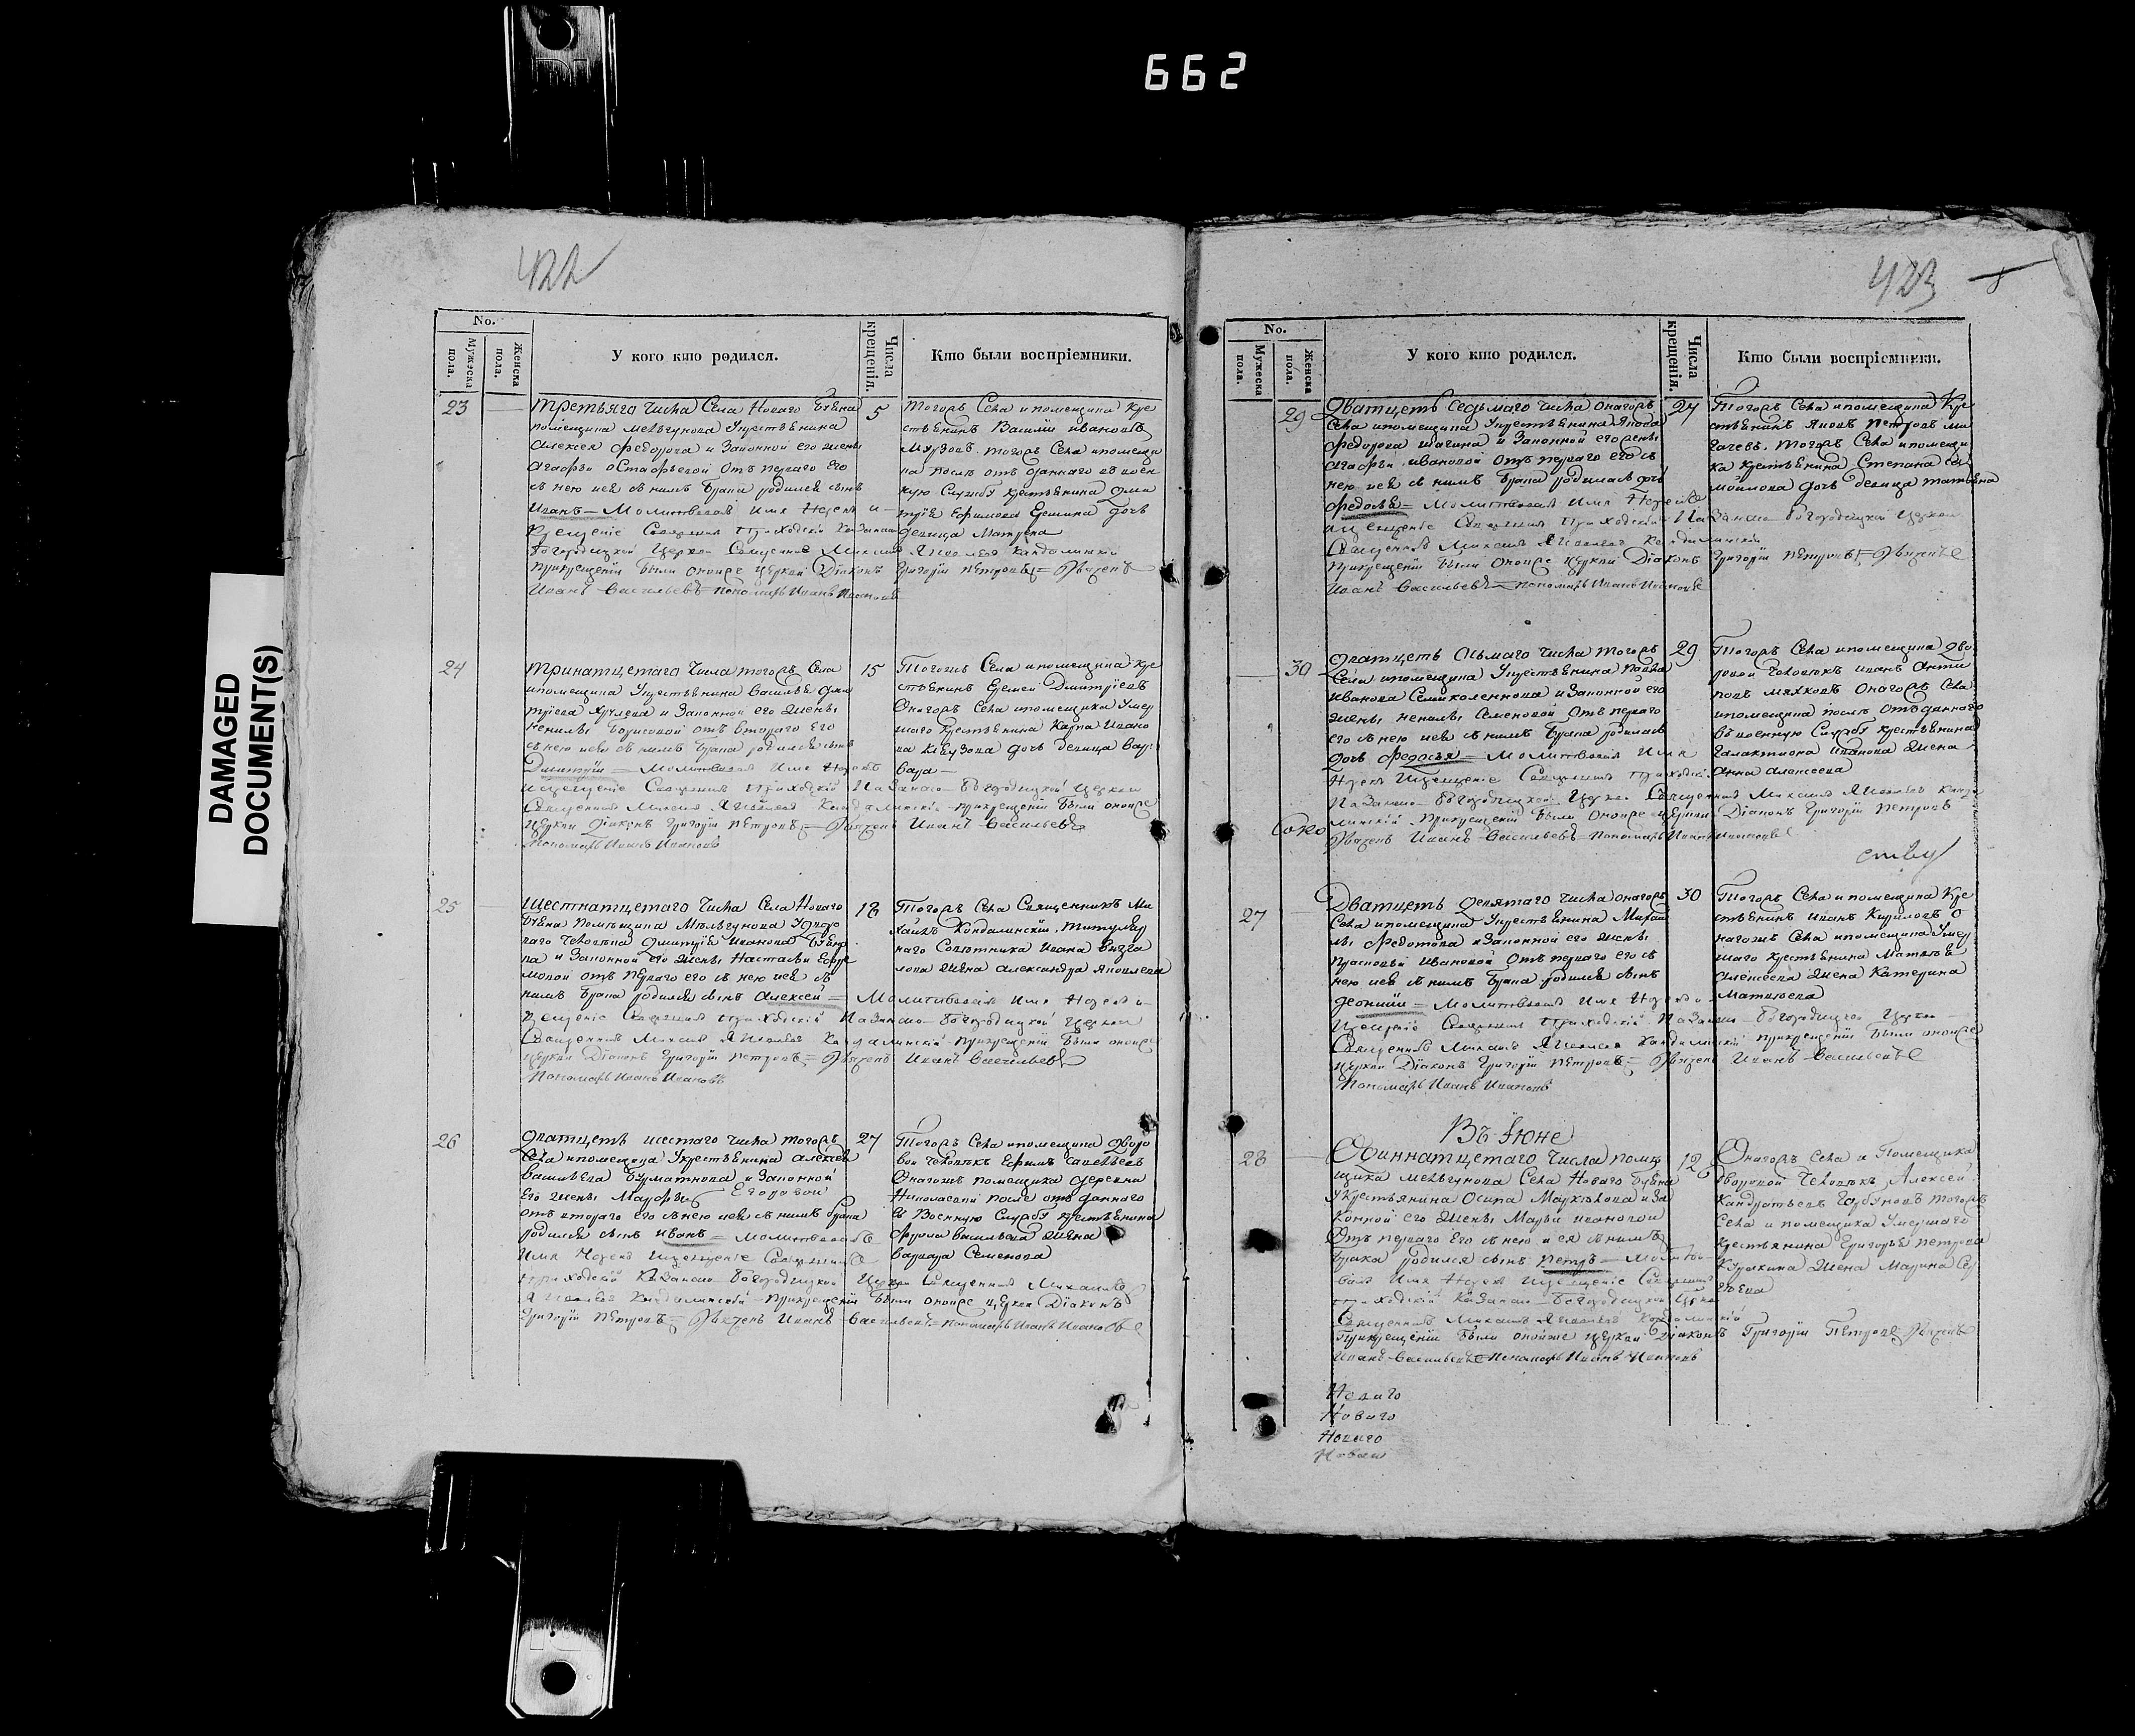 662
DAMAGED
DOCUMENT(S)
422
No.
Мужеска пола.
Женска пола.
У кого кто родился.
Числа крещенія.
Кто были воспріемники.
23
Третьяго числа Села Новаго
помещика Мельгунова Укрестьянина
Алексея Федорова и Законной его жены
Агафьи Остафьевой Отъ перваго его
съ нею иея съ нимъ брака родился сынъ
Иванъ — Молитвовалъ Имя Нареkъ и
Крещеніе Совершилъ Приходскій Казанско
Богородицкой Церкви Священникъ Михаилъ Яковлевъ Кандалинскій
прикрещеніи были оноиже церкви Діаконъ Григорій Петровъ =
Иванъ Васильевъ = пономарь Иванъ Ивановъ
5
Тогожъ Села ипомещика кре
стьянинъ Василий Ивановъ
тогожъ Села ипомещи
ка после отъданнаго въ воен
ную Службу крестьянина Дми
трія Ефимова дочь
девица Матрена
24
Тринатцетаго Числа тогожъ Села
ипомещика Укрестьянина Василья Дми
тріева и Законной его жены
Ненилы Борисовой отъ втораго Его
съ нею иея съ нимъ брака родился сынъ
Дмитрій — Молитвовалъ Имя Нарекъ
икрещеніе Совершилъ приходскій Казанско Богородицкой Церкви
Священникъ Михаилъ Яковлевъ Кандалинскій прикрещеніи были оноиже
церкви Діаконъ Григорій Петровъ = Иванъ Васильевъ
Пономарь Иванъ Ивановъ
15
Тогожъ Села ипомещика кре
стьянинъ Еремей Дмитріевъ
Оногожъ Села ипомещика Умер
шаго крестьянина Карпа Ивано
ва дочь девица Вар
вара
25
Шестнатцетаго Числа Села Новаго
Помещика Мельгунова Удворо
ваго человека Дмитрія Иванова
и Законной его жены Настасьи Ефре
мовой отъ перваго его съ нею иея съ
нимъ брака родился сынъ Алексей = Молитвовалъ Имя Нарекъ и
крещеніе Совершилъ приходскій Казанско Богородицкой Церкви
Священникъ Михаилъ Яковлевъ Кандалинскій прикрещеніи были оноиже
церкви Діаконъ Григорій Петровъ = Иванъ Васильевъ
Пономарь Иванъ Ивановъ
18
Тогожъ Села Священникъ Ми
хаилъ Кандалинскій, титуляр
наго Советника Ивана
жена Александра Яковлева
26
Дватцеть шестаго числа тогожъ
Села ипомещика Укрестьянина Алексея
Васильева и Законной
Его жены Марфы Егоровой
отъ втораго его съ нею иея съ нимъ брака
родился сынъ Иванъ = молитвовалъ
Имя Нарекъ икрещеніе Совершилъ
приходскій Казанско Богородицкой Церкви Священникъ Михаилъ
Яковлевъ Кандалинскій прикрещеніи были оноиже церкви Діаконъ
Григорій Петровъ = Иванъ Васильевъ = пономарь Иванъ Ивановъ
27
Тогожъ Села ипомещика Дворо
вой человекъ Ефимъ Савельевъ
Оногожъ помещика деревни
Николаевки после отъданнаго
въ Военную Службу крестьянина
Фрола Васильева жена
Варвара Семенова
423
No.
Мужеска пола.
Женска пола.
У кого кто родился.
Числа крещенія.
Кто были воспріемники.
29
Дватцеть седьмаго числа оногожъ
Села ипомещика Укрестьянина Якова
Федорова Шагина и Законной его жены
Агафьи Ивановой Отъ перваго его съ
нею иея съ нимъ брака родилась дочь
Федосья = Молитвовалъ Имя Нарекъ
икрещеніе Совершилъ Приходскій Казанско Богородицкой Церкви
Священникъ Михаилъ Яковлевъ Кандалинскій
прикрещеніи были оноиже церкви Діаконъ Григорій Петровъ =
Иванъ Васильевъ = пономарь Иванъ Ивановъ
27
Тогожъ Села ипомещика кре
стьянинъ Яковъ Петровъ
тогожъ Села ипомещи
ка крестьянина Степана
дочь девица Татьяна
30
Дватцеть осьмаго числа тогожъ
Села ипомещика Укрестьянина Павла
Иванова Семиколеннова и Законной его
жены Ненилы Семеновой Отъ перваго
его съ нею иея съ нимъ брака родилась
дочь Федосья = Молитвовалъ Имя
Нарекъ икрещеніе Совершилъ приходскій
Казанско Богородицкой Церкви Священникъ Михаилъ Яковлевъ Канда
линскій прикрещеніи были оноиже церкви Діаконъ Григорій Петровъ
Иванъ Васильевъ = пономарь Иванъ Ивановъ
29
Тогожъ Села ипомещика дво
ровой человекъ Иванъ Анти
повъ оногожъ Села
ипомещика после отъданнаго
въ военную Службу крестьянина
Галактиона Иванова жена
Анна Алексеева
27
Дватцеть девятаго числа оногожъ
Села ипомещика Укрестьянина Михаи
лы Федотова и Законной его жены
Прасковьи Ивановой Отъ перваго его съ
нею иея съ нимъ брака родился сынъ
Леонтий = Молитвовалъ Имя Нарекъ и
крещеніе Совершилъ приходскій Казанско Богородицкой Церкви
Священникъ Михаилъ Яковлевъ Кандалинскій прикрещеніи были оноиже
церкви Діаконъ Григорій Петровъ = Иванъ Васильевъ
Пономарь Иванъ Ивановъ
30
Тогожъ Села ипомещика кре
стьянинъ Иванъ Кириловъ О
ногожъ Села ипомещика Умер
шаго крестьянина Матвея
Алексеева жена Катерина
Матвеева
Въ Іюне
28
Одиннатцетаго Числа поме
щика Мельгунова Села Новаго
Укрестьянина Осипа и За
конной его жены Марьи Ивановой
Отъ перваго Его съ нею и ея съ нимъ
брака родился сынъ Петръ = Молитво
валъ Имя Нарекъ икрещеніе Совершилъ
приходскій Казанско Богородицкой Церкви
Священникъ Михаилъ Яковлевъ Кандалинскій
Прикрещеніи были оноиже церкви Діаконъ Григорій Петровъ
Иванъ Васильевъ = Пономарь Иванъ Ивановъ
12
Оногожъ Села и Помещика
дворовой человекъ Алексей
Кандратьевъ Горбуновъ тогожъ
Села и помещика Умершаго
крестьянина Григорья Петрова
жена Марина Сер
геева
Новаго
Новаго
Новаго